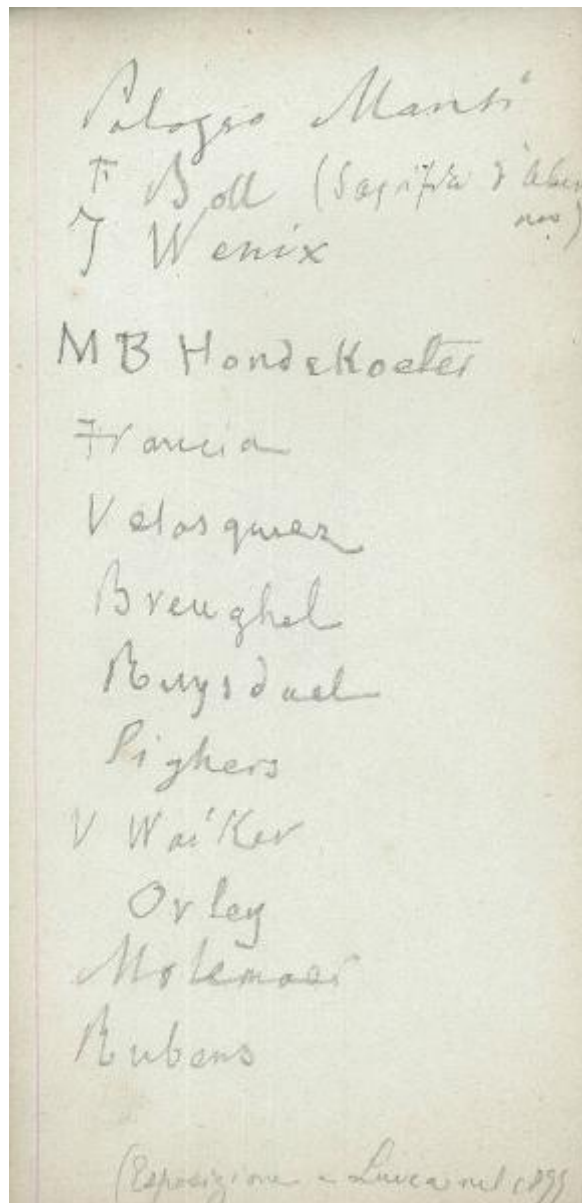 Palazzo Mansi
F Boll (Sagrifizio d'Abra
mo)
J Wenix
M B Hondekoeter
Francia
Velasquez
Breughel
Ruysdael
Pighers
V Waiker
Orley
Molenaer
Rubens
(Esposizione a Lucca nel 189